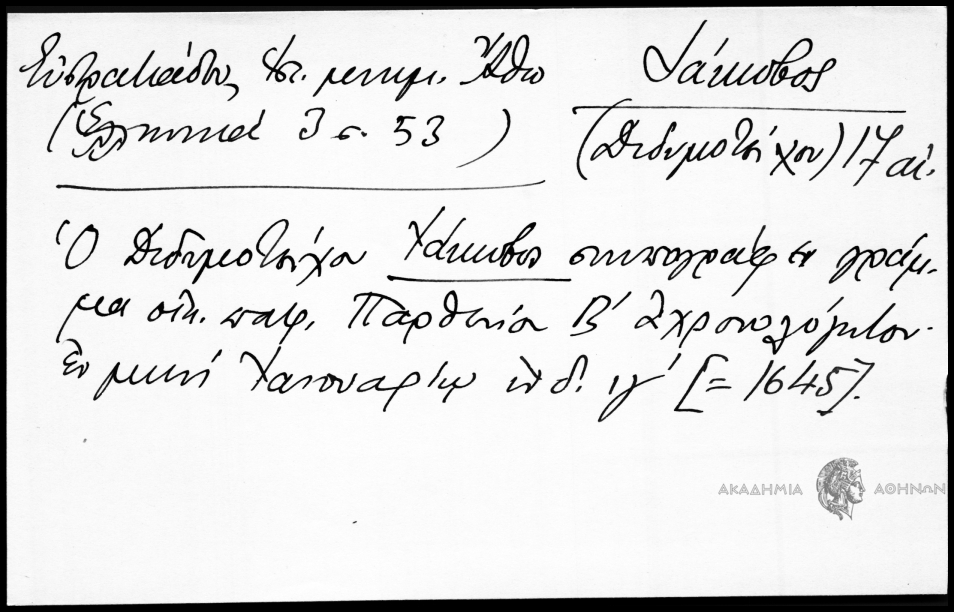 Εὐστρατιάδου, Ἱστ. μνημ. Ἄθω
(Ἑλληνικά 3 σ. 53)
Ἰάκωβος
(Διδυμοτείχου) 17 αἰ.
Ὁ Διδυμοτείχου Ἰάκωβος συνυπογράφει γράμ-
μα οἰκ. πατρ. Παρθενίου Β΄ ἀχρονολόγητον.
Ἐν μηνὶ Ἰανουαρίῳ ἰνδ. ιγ΄ [= 1645].
ΑΚΑΔΗΜΙΑ ΑΘΗΝΩΝ